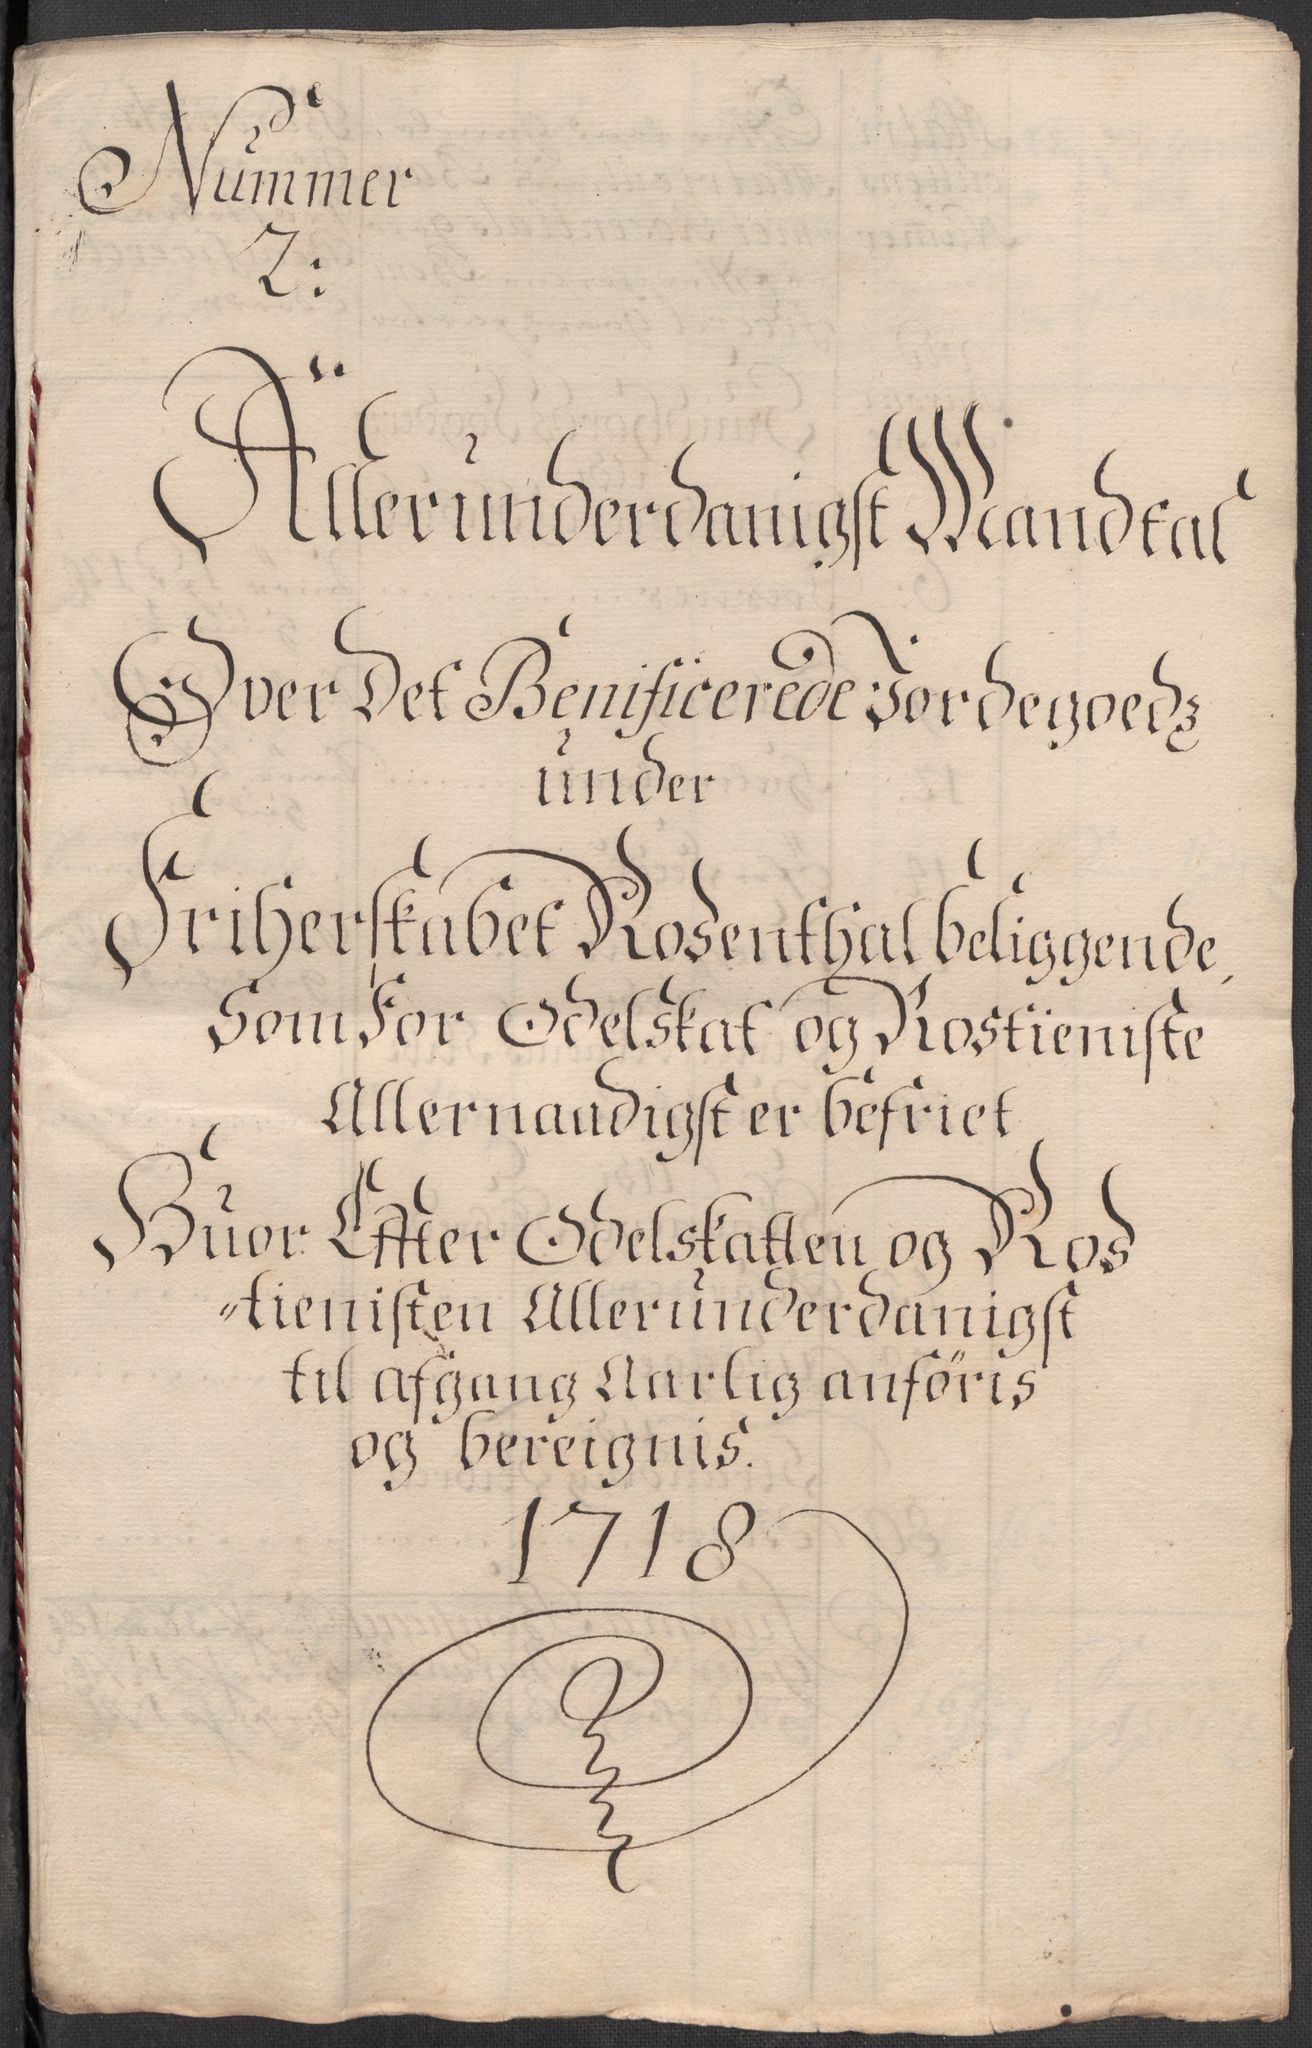 Nummer
2:
Allerunderdanigst Mandtal
Over Det Benificerede Jordegoedz
under
Friherskabet Rosenthal beliggende,
som for Odelskat og Rostieniste
Allernaadigst er befriet
Huor Effter Odelskatten og Ros
=tienisten Allerunderdanigst
til afgang Aarlig anföris
og bereignis.
1718